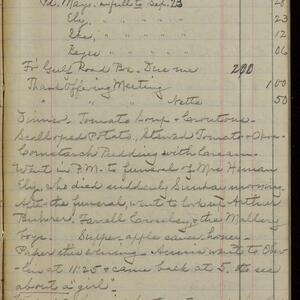 Pd. Mays. in full to Sep. 23 28
Ely, " " " " 23
" " " " 12
" " " " 06
Fr Gulf Road Bx. Due me 200
Thank Offering Meeting 1 00
" " " Netta 50
Dinner, Tomato Soup + Croutons.
Scalloped Potato, Stewed Tomato + Okra.
Cornstarch Pudding with Cream.
Went in P.M. to funeral of Mrs Hiram
Ely, who died suddenly Sunday morning.
After the funeral, went to look up Arthur
Farell Crowley, + the Mallory
boys. Supper, apple sauce, honey.
Paper this evening. Anson went to Ober-
lin at 11:25 + came back at 5. to see
about a "girl".